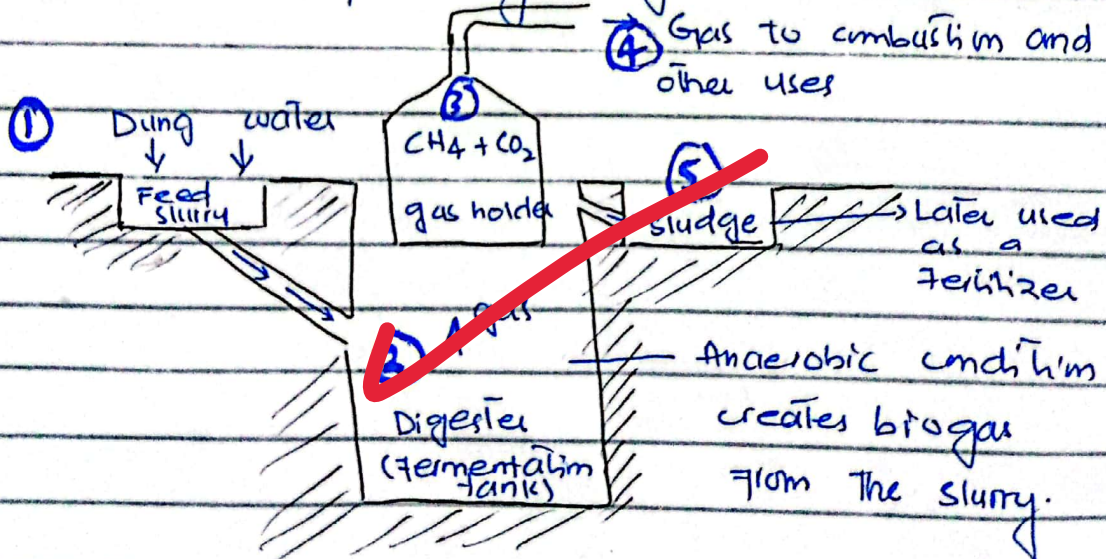 ④ Gas to combustion and
other uses
① Dung water
③
CH4 + CO2
gas holder
Feed
slurry
⑤
sludge
Later used
as a
Fertilizer
② gas
Digester
(Fermentation
Tank)
Anaerobic condition
creates biogas
from the slurry.